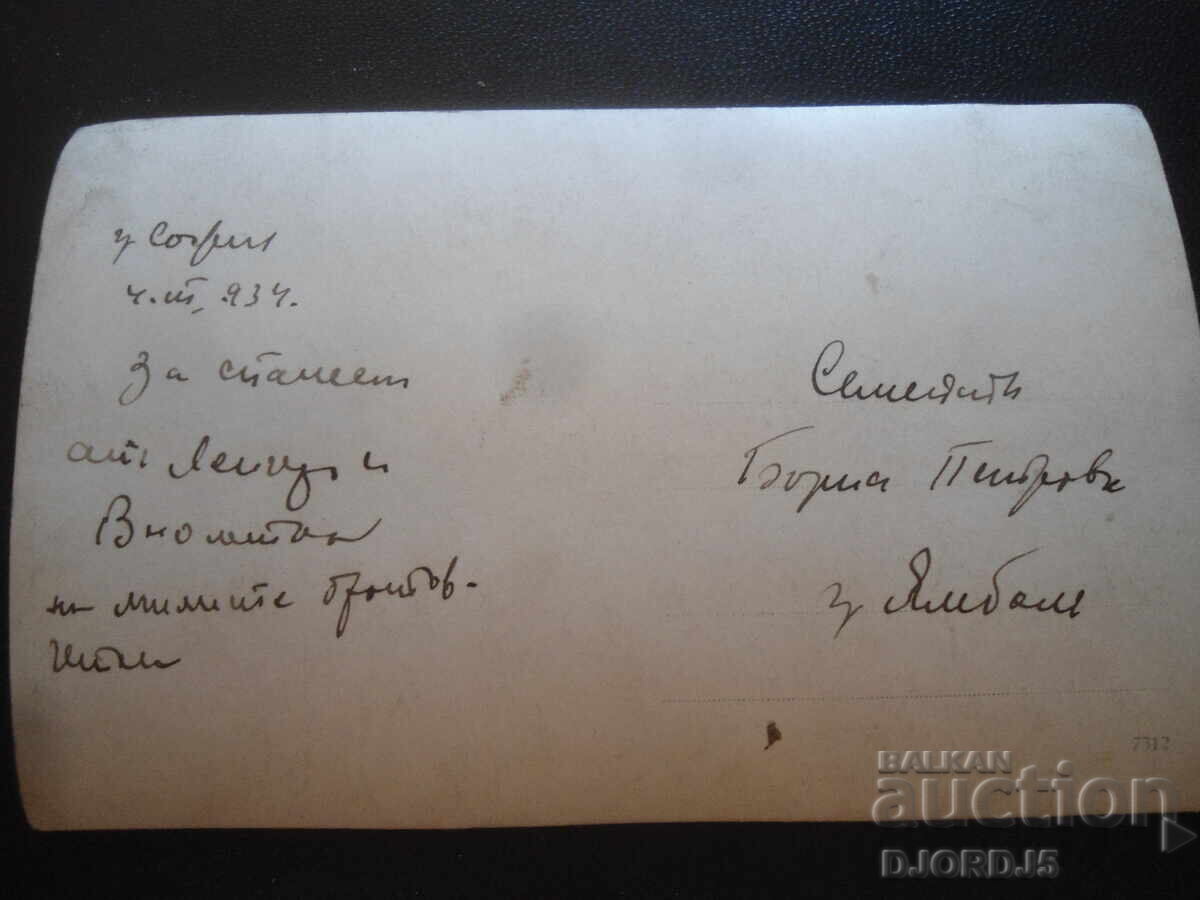 гр София
4.III.934.
За спомен
отъ и
на милите братов-
чеди
Семейството
Борис Петрови
гр Ямболъ
7312
BALKAN
auction
DJORDJ5